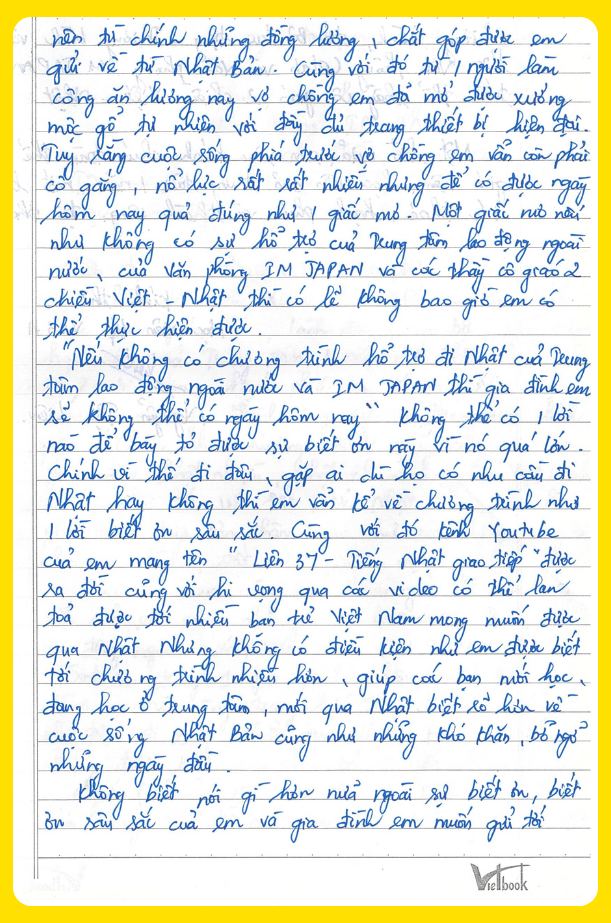 nên từ chính những đồng lương, chắt góp được em
gửi về từ Nhật Bản. Cùng với đó từ 1 người làm
công ăn lương nay vợ chồng em đã mở được xưởng
mộc gỗ tự nhiên với đầy đủ trang thiết bị hiện đại.
Tuy rằng cuộc sống phía trước vợ chồng em vẫn còn phải
cố gắng, nổ lực rất rất nhiều nhưng để có được ngày
hôm nay quả đúng như 1 giấc mơ. Một giấc mơ nếu
như không có sự hổ trợ của Trung tâm lao động ngoài
nước, của văn phòng IM JAPAN và các thầy cô giáo 2
chiều Việt - Nhật thì có lẽ không bao giờ em có
thể thực hiện được.
"Nếu không có chương trình hổ trợ đi Nhật của Trung
tâm lao động ngoài nước và IM JAPAN thì gia đình em
sẽ không thể có ngày hôm nay" không thể có 1 lời
nào để bày tỏ được sự biết ơn này vì nó quá lớn.
Chính vì thế đi đâu, gặp ai dù họ có nhu cầu đi
Nhật hay không thì em vẫn kể về chương trình như
1 lời biết ơn sâu sắc. Cùng với đó kênh Youtube
của em mang tên "Liên 37 - Tiếng Nhật giao tiếp" được
ra đời cùng với hi vọng qua các video có thể lan
toả được tới nhiều bạn trẻ Việt Nam mong muốn được
qua Nhật Nhưng không có điều kiện như em được biết
tới chương trình nhiều hơn, giúp các bạn mới học,
đang học ở trung tâm, mới qua Nhật biết rõ hơn về
cuộc sống Nhật Bản cũng như những khó khăn, bở ngở
những ngày đầu.
Không biết nói gì hơn nữa ngoài sự biết ơn, biết
ơn sâu sắc của em và gia đình em muốn gửi tới
Vietbook